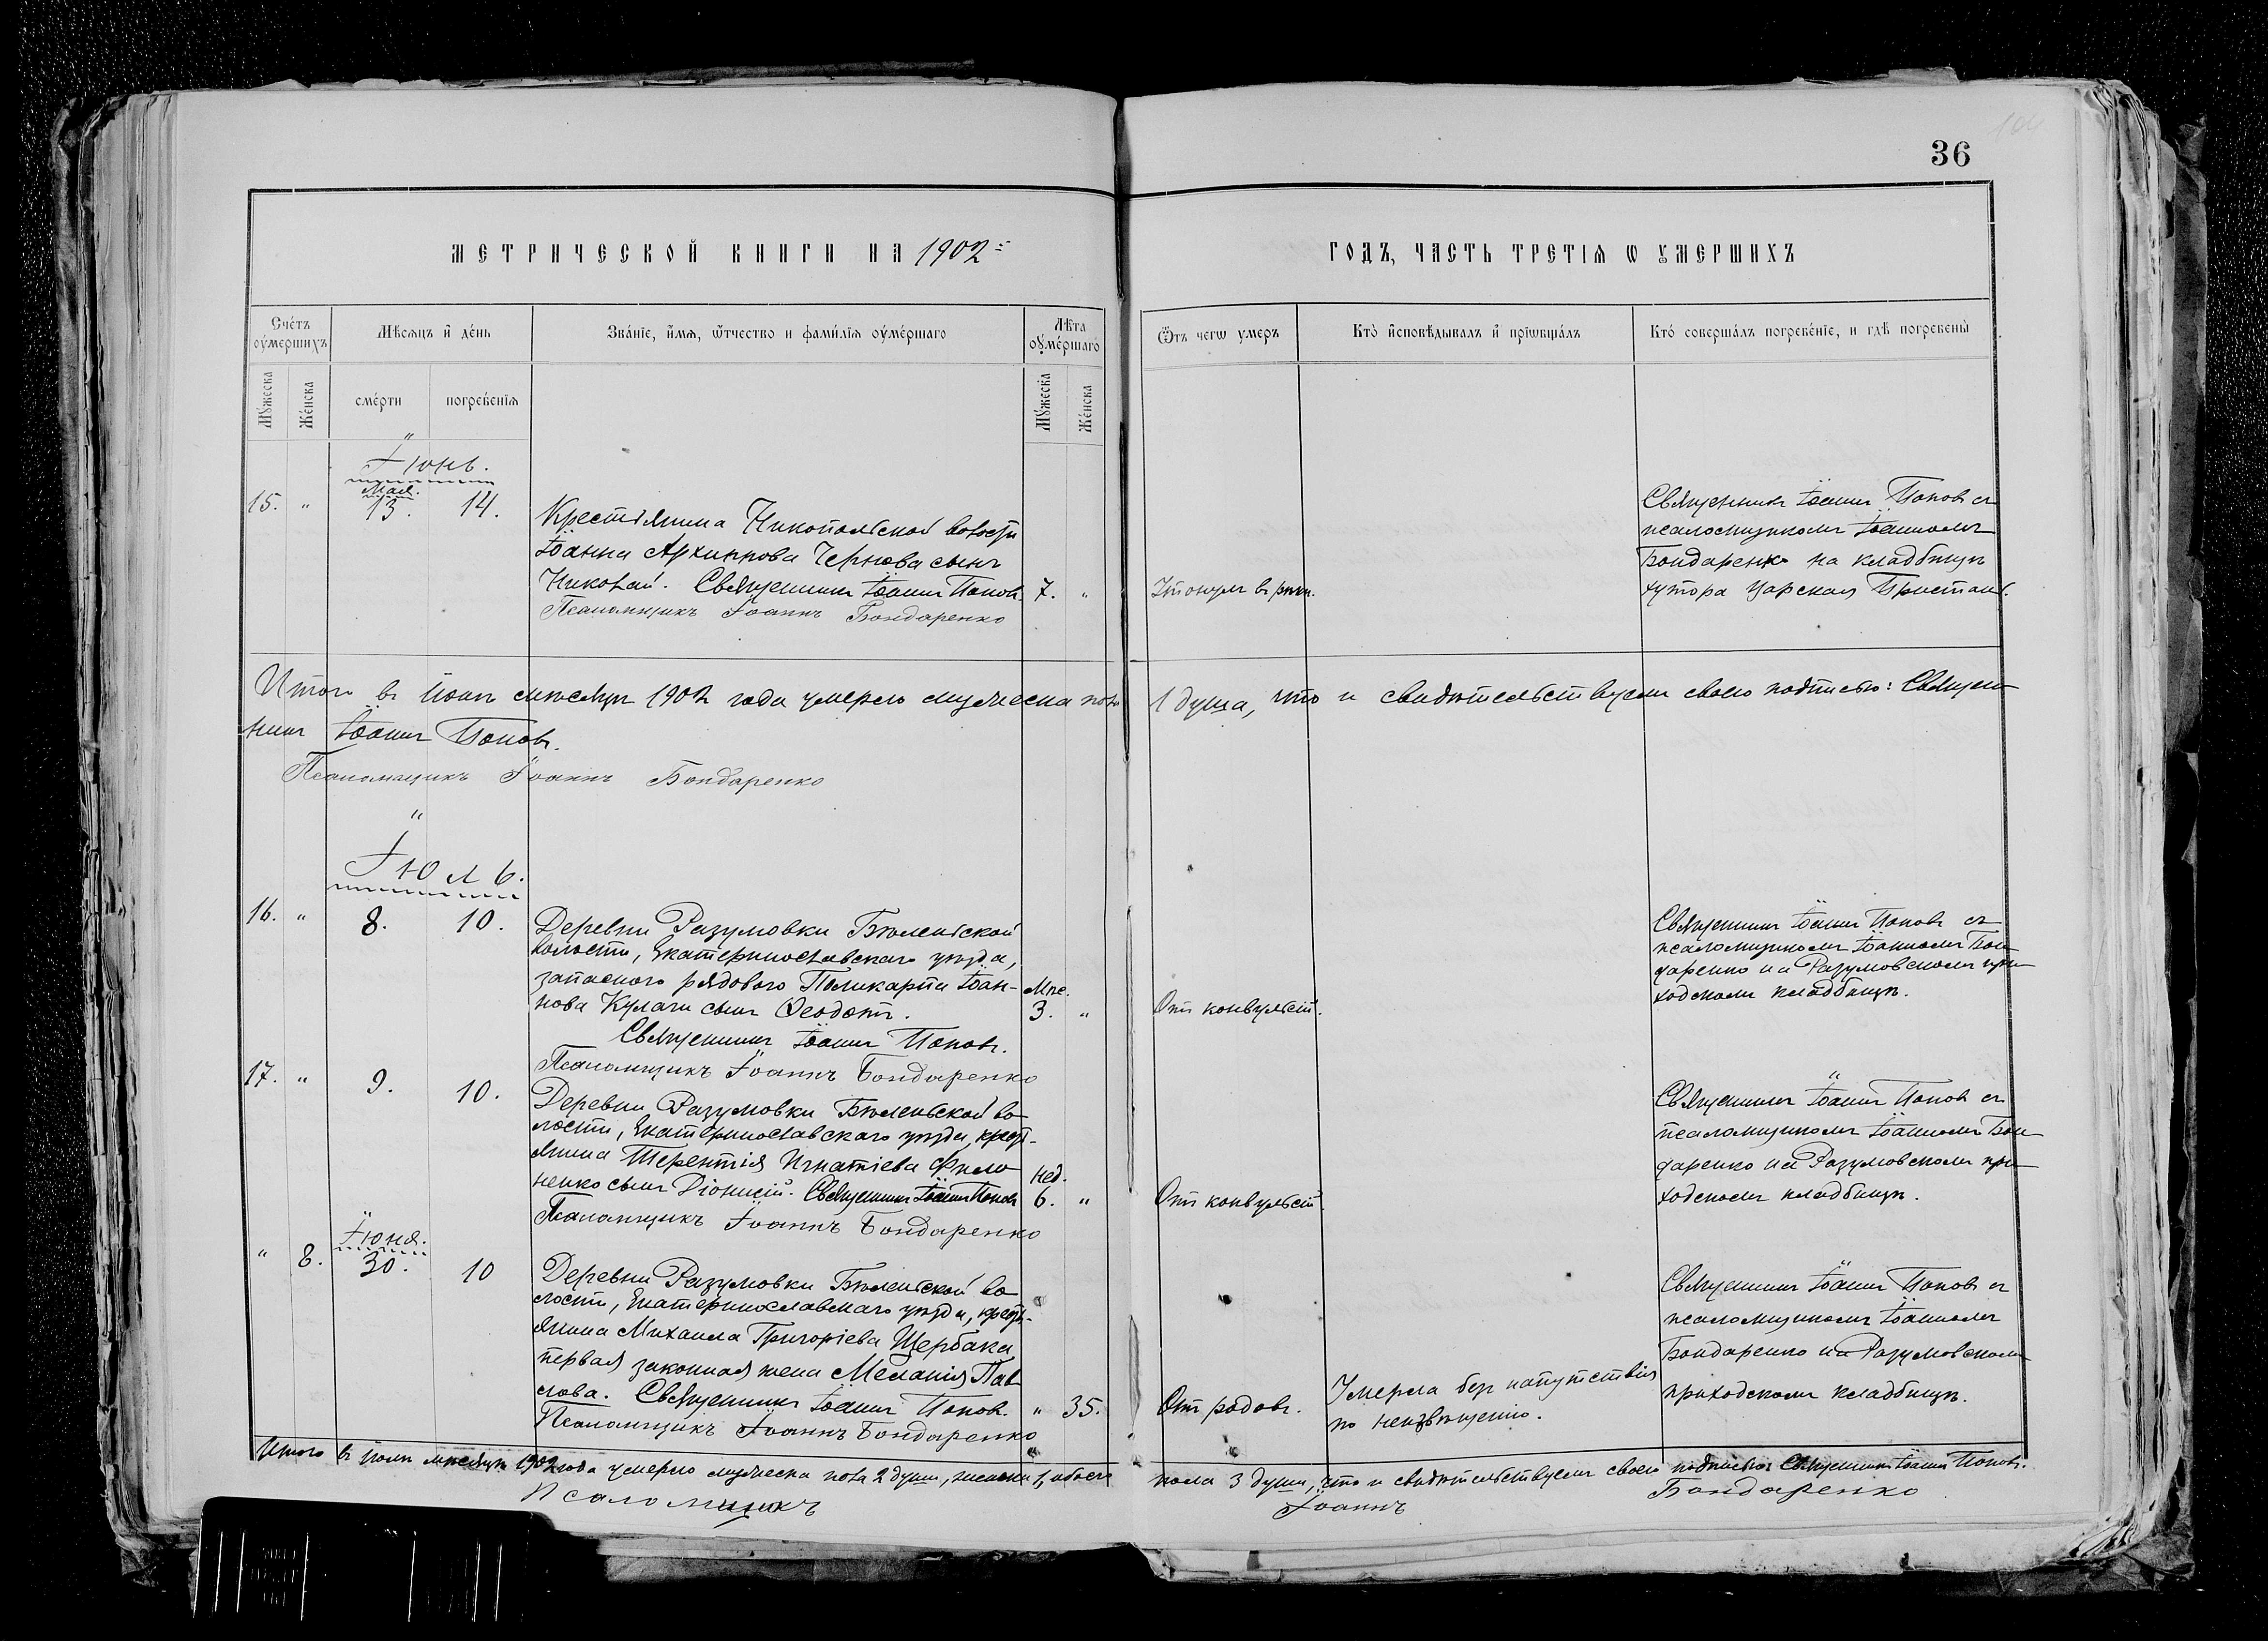 36
МЕТРИЧЕСКОЙ КНИГИ НА 1902
ГОДЪ, ЧАСТЬ ТРЕТІѦ Ѡ ꙊМЕРШИХЪ
Счетъ оумершихъ
Мѣсяцъ и день
Званіе, имя, ѿчество и фамилія оумершаго
Лѣта оумершаго
Ѿтъ чегѡ умеръ
Кто исповѣдывалъ и пріѡбщалъ
Кто совершалъ погребеніе, и гдѣ погребены
Мужеска
Женска
смерти
погребенія
Мужеска
Женска
Іюнь.
15. "
Мая.
13. 14.
Крестьянина Никопольской волости
Іоанна Архиппова Чернова сынъ
Николай. Священникъ Іоаннъ Поповъ
Псаломщикъ Іоаннъ Бондаренко
7. "
Утонулъ въ рѣкѣ.
Священникъ Іоаннъ Поповъ съ
псаломщикомъ Іоанномъ
Бондаренко на кладбищѣ
хутора Царская Пристань.
Итого въ Іюнѣ мѣсяцѣ 1902 года умерло мужеска пола 1 душа, что и свидѣтельствуемъ своею подписью: Священ
никъ Іоаннъ Поповъ.
Псаломщикъ Іоаннъ Бондаренко
Іюль.
16. "
8. 10.
Деревни Разумовки Бѣленьской
волости, Екатеринославскаго уѣзда,
запаснаго рядового Поликарпа Іоан-
нова Кулаги сынъ Ѳеодотъ.
Священникъ Іоаннъ Поповъ.
Псаломщикъ Іоаннъ Бондаренко
Мѣс.
3. "
Отъ конвульсій.
Священникъ Іоаннъ Поповъ съ
псаломщикомъ Іоанномъ Бон
даренко на Разумовскомъ при
ходскомъ кладбищѣ.
17. "
9. 10.
Деревни Разумовки Бѣленьской во
лости, Екатеринославскаго уѣзда, крест-
янина Терентія Игнатіева Фило
ненко сынъ Діонисій. Священникъ Іоаннъ Поповъ
Псаломщикъ Іоаннъ Бондаренко
Нед.
6. "
Отъ конвульсій
Священникъ Іоаннъ Поповъ съ
псаломщикомъ Іоанномъ Бон
даренко на Разумовскомъ при
ходскомъ кладбищѣ.
" 8.
Іюня.
30. 10
Деревни Разумовки Бѣленьской во
лости, Екатеринославскаго уѣзда, крест-
янина Михаила Григоріева Щербака
первая законная жена Меланія Пав
лова. Священникъ Іоаннъ Поповъ.
Псаломщикъ Іоаннъ Бондаренко
" 35.
Отъ родовъ.
Умерла безъ напутствія
по неизвѣщенію.
Священникъ Іоаннъ Поповъ съ
псаломщикомъ Іоанномъ
Бондаренко на Разумовскомъ
приходскомъ кладбищѣ.
Итого въ Іюлѣ мѣсяцѣ 1902 года умерло мужеска пола 2 души, женска 1, обоего пола 3 души, что и свидѣтельствуемъ своею подписью: Священникъ Іоаннъ Поповъ.
Псаломщикъ Іоаннъ Бондаренко